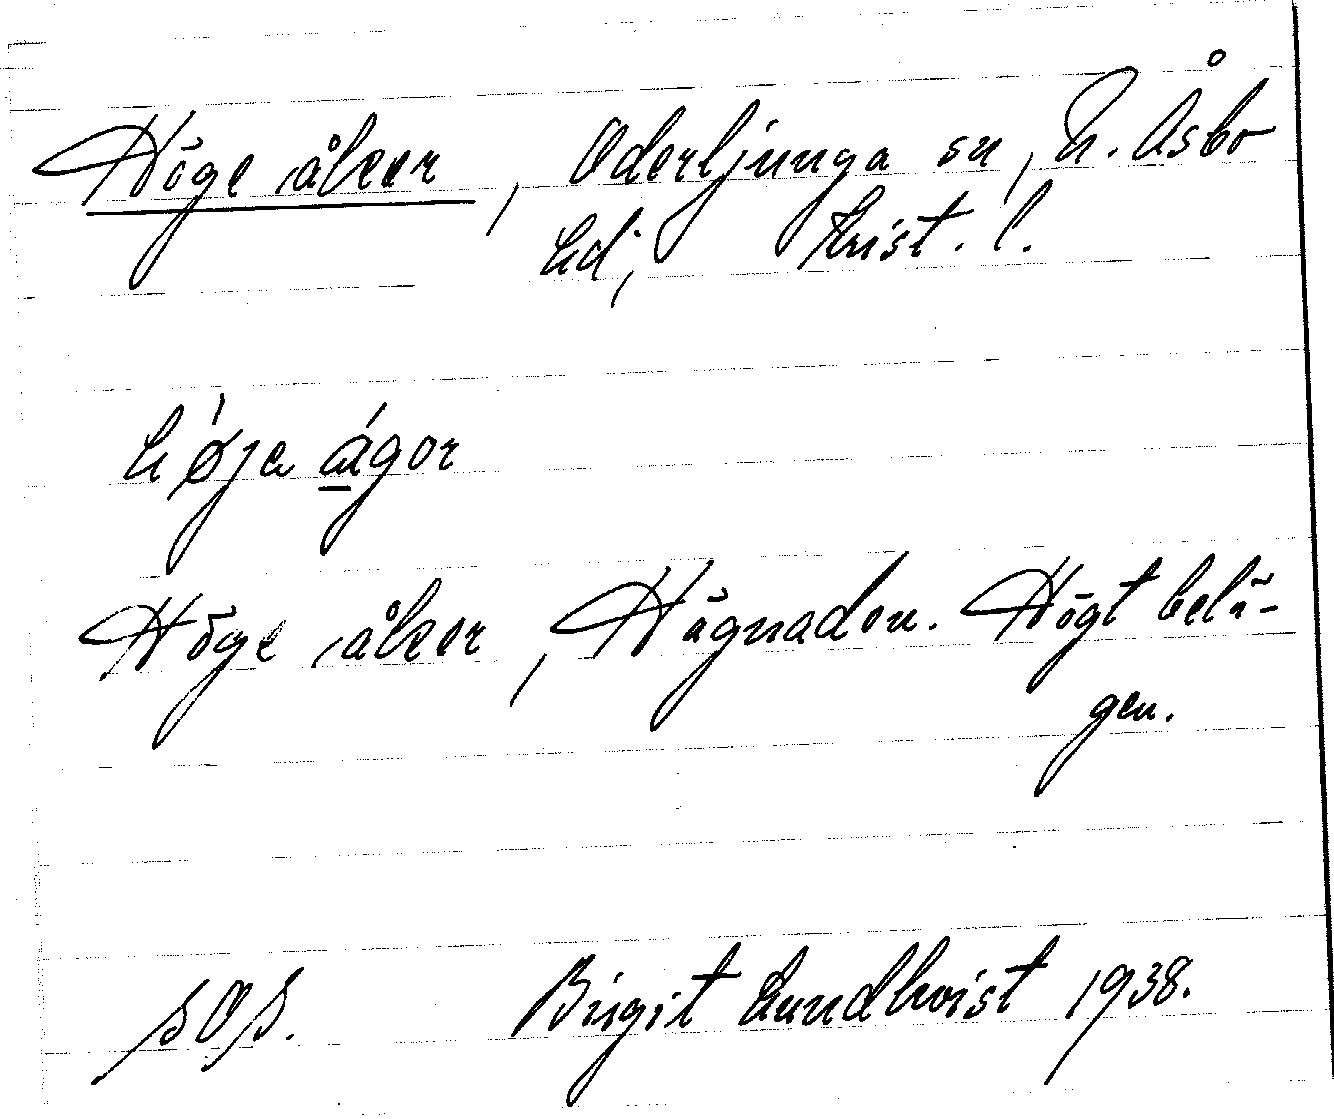 Höge åker, Oderljunga sn, N. Åsbo
hd; Krist. l.
høja ágor
Höge åker, Hägnaden. Högt belä-
gen.
sOs. Birgit Lundkvist 1938.